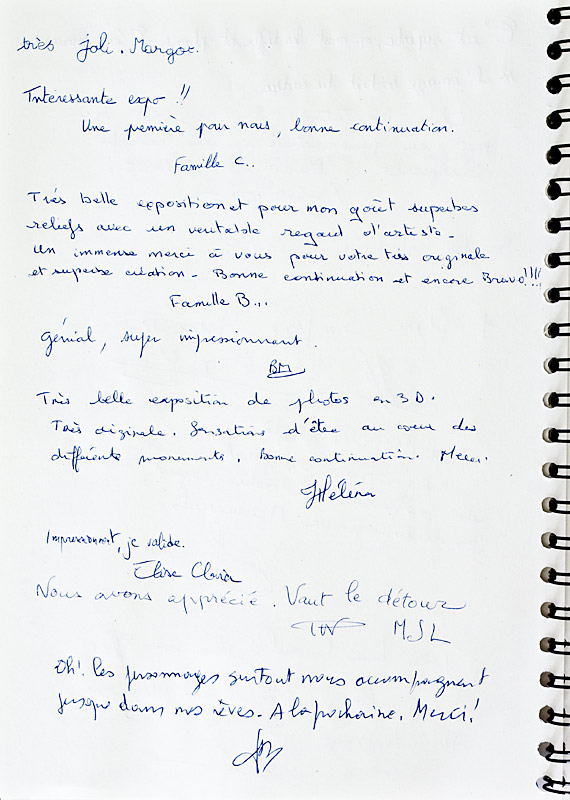 très joli. Margot.
Intéressante expo !!
Une première pour nous, bonne continuation.
Famille C..
Très belle exposition et pour mon goût superbes
reliefs avec un veritable regard d'artiste -
Un immense merci à vous pour votre très originale
et superbe création - Bonne continuation et encore Bravo !!!!
Famille B...
Génial, super impressionnant.
BM
Très belle exposition de photos en 3D.
Très originale. Sensations d'être au coeur des
différents monuments. Bonne continuation. Merci.
Héléna
Impressionnant, je valide.
Elise
Nous avons apprécié. Vaut le détour
MSL
Oh! les personnages surtout nous accompagnent
jusque dans nos rêves. A la prochaine. Merci!